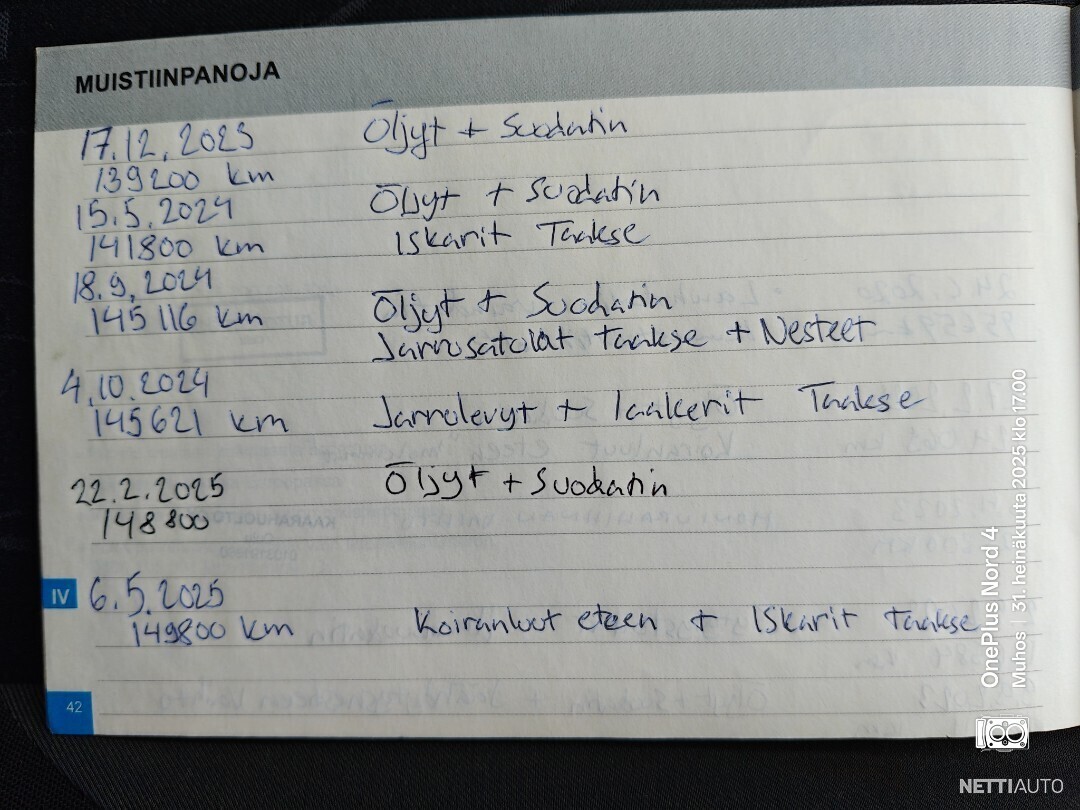 MUISTIINPANOJA
17.12.2023 Öljyt + Suodatin
139200 km
15.5.2024 Öljyt + Suodatin
141800 km Iskarit Taakse
18.9.2024
145116 km Öljyt + Suodatin
Jarrusatulat taakse + Nesteet
4.10.2024
145621 km Jarrulevyt + laakerit Taakse
22.2.2025 Öljyt + Suodatin
148800
IV 6.5.2025
149800 km Koiranluut eteen + Iskarit Taakse
42
OnePlus Nord 4
Muhos | 31. heinäkuuta 2025 klo 17.00
NETTIAUTO